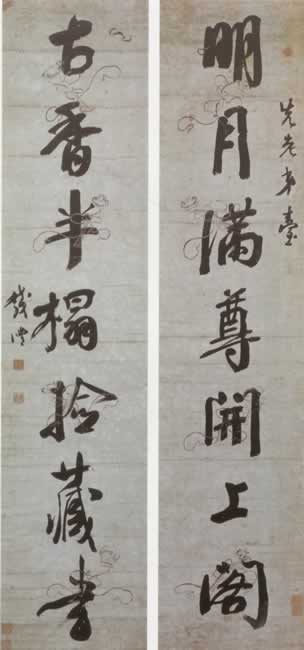 先老弟臺
明月滿尊開上閣
古香半榻檢藏書
錢灃